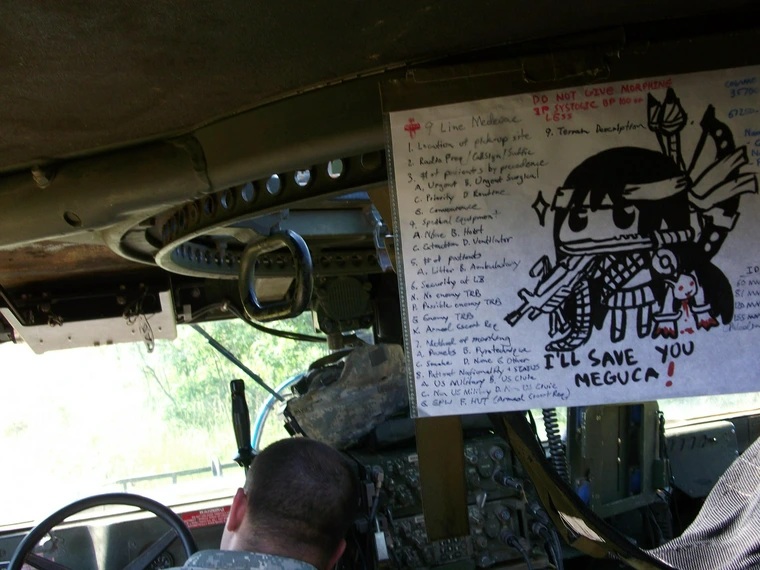 DO NOT GIVE MORPHINE
IF SYSTOLIC BP
LESS
9 Line Medevac
1. Location of pick-up site
2. Radio Freq/Callsign/Suffix
3. # of patients by precedence
A. Urgent B. Urgent Surgical
C. Priority D. Routine
E. Convenience
4. Special Equipment
A. None B. Hoist
C. Extraction D. Ventilator
5. # of patients
A. Litter B. Ambulatory
6. Security at LZ
N. No enemy TRB
P. Possible enemy TRB
E. Enemy TRB
X. Armed Escort Req
7. Method of marking
A. Panels B. Pyrotechnic
C. Smoke D. None E. Other
8. Patient Nationality + STATUS
A. US Military B. US Civic
C. Non US Military D. Non US Civic
E. EPW F. HVT (Armed Escort Req)
9. Terrain Description
I'LL SAVE YOU
MEGUCA!
WARNING